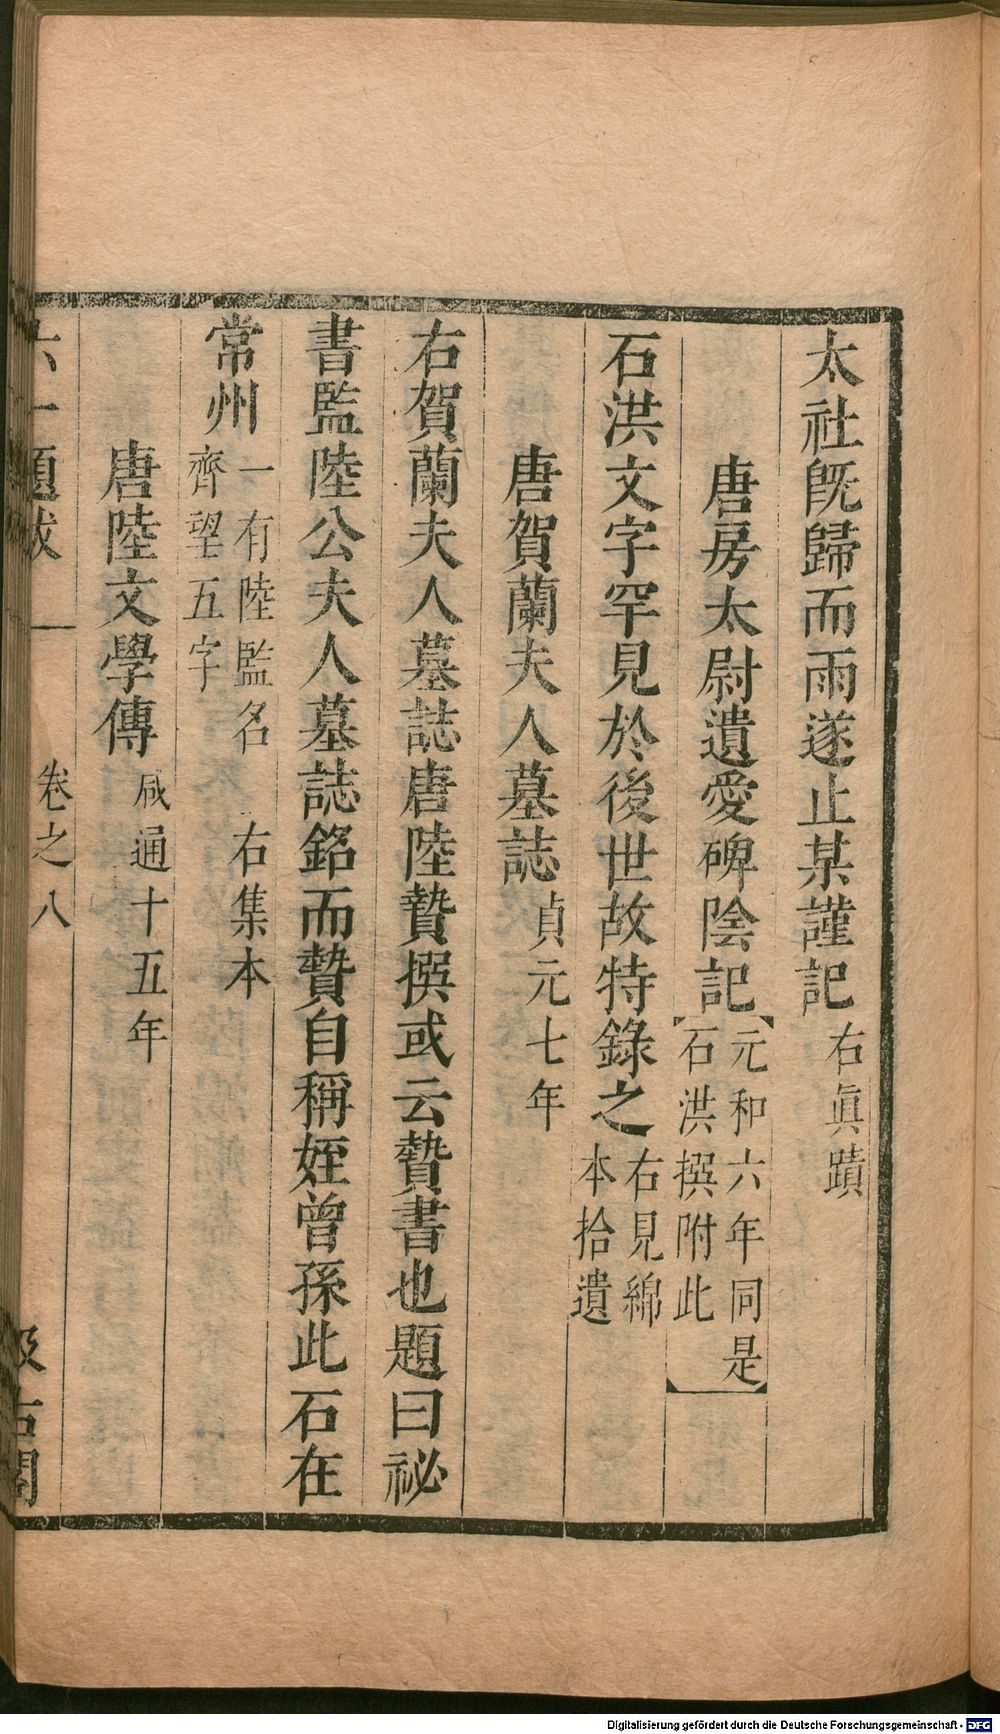 太社旣歸而雨遂止某謹記右眞蹟
唐房太尉遺愛碑陰記元和六年同是石洪撰附此
石洪文字罕見於後世故特錄之右見綿本拾遺
唐賀蘭夫人墓誌貞元七年
右賀蘭夫人墓誌唐陸贄撰或云贄書也題曰祕
書監陸公夫人墓誌銘而贄自稱姪曾孫此石在
常州一有陸監名齊望五字 右集本
唐陸文學傳咸通十五年
六一題跋 卷之八 汲古閣
Digitalisierung gefördert durch die Deutsche Forschungsgemeinschaft - DFG